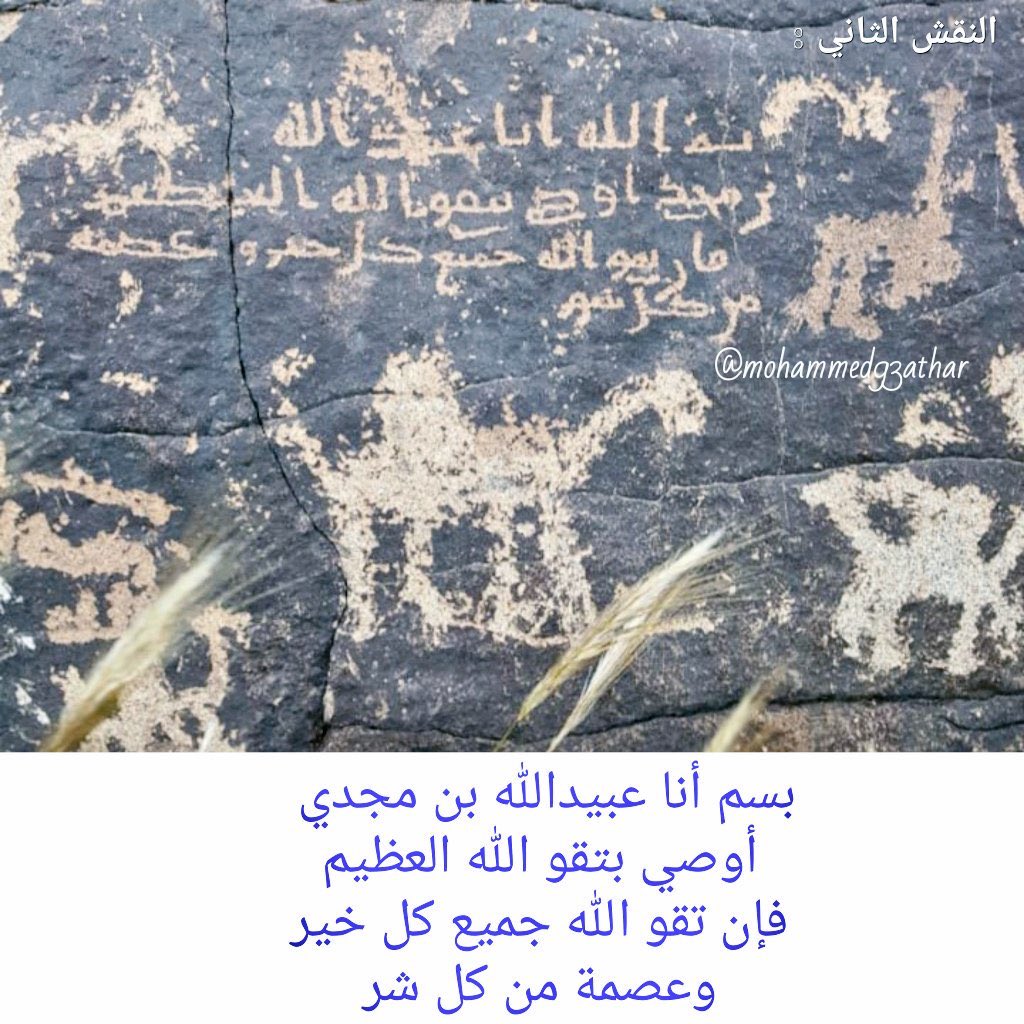 النقش الثاني :
بسم الله انا عبيد الله
بن مجدي اوصي بتقوا الله العظيم
فان تقو الله جميع كل خير وعصمة
من كل شر
@mohammedg3athar
بسم أنا عبيدالله بن مجدي
أوصي بتقو الله العظيم
فإن تقو الله جميع كل خير
وعصمة من كل شر